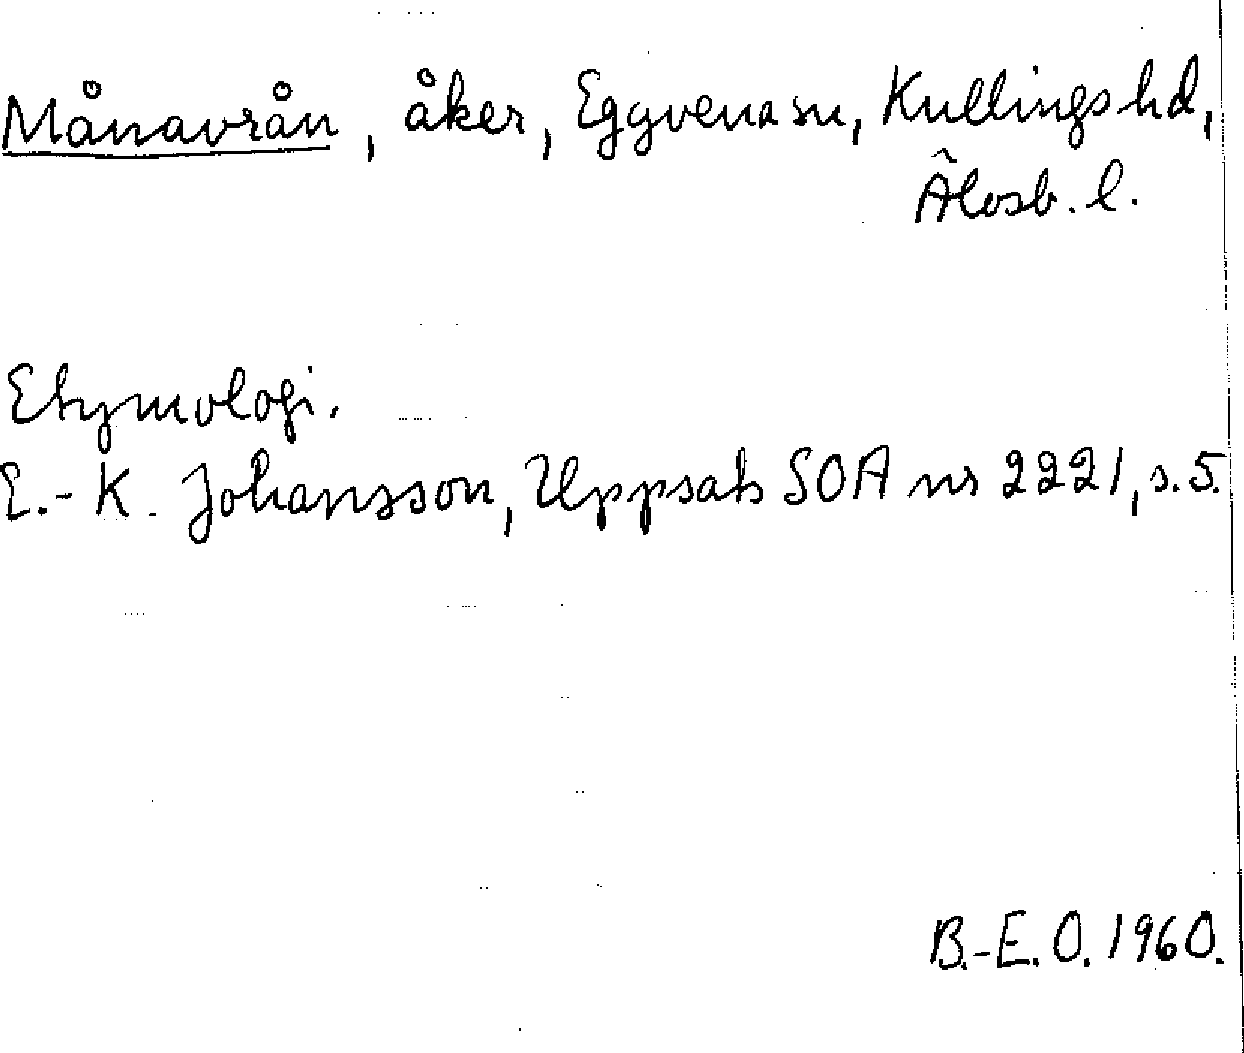 Månavrån, åker, Eggvena sn, Kullings hd,
Älvsb. l.
Etymologi.
E.-K. Johansson, Uppsats SOA nr 2221, s. 5.
B.-E. O. 1960.